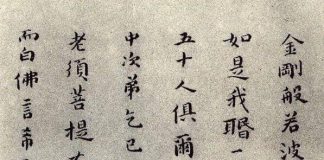 金剛般若波
如是我聞一
五十人俱爾
中次弟乞已
老須菩提
而白佛言希